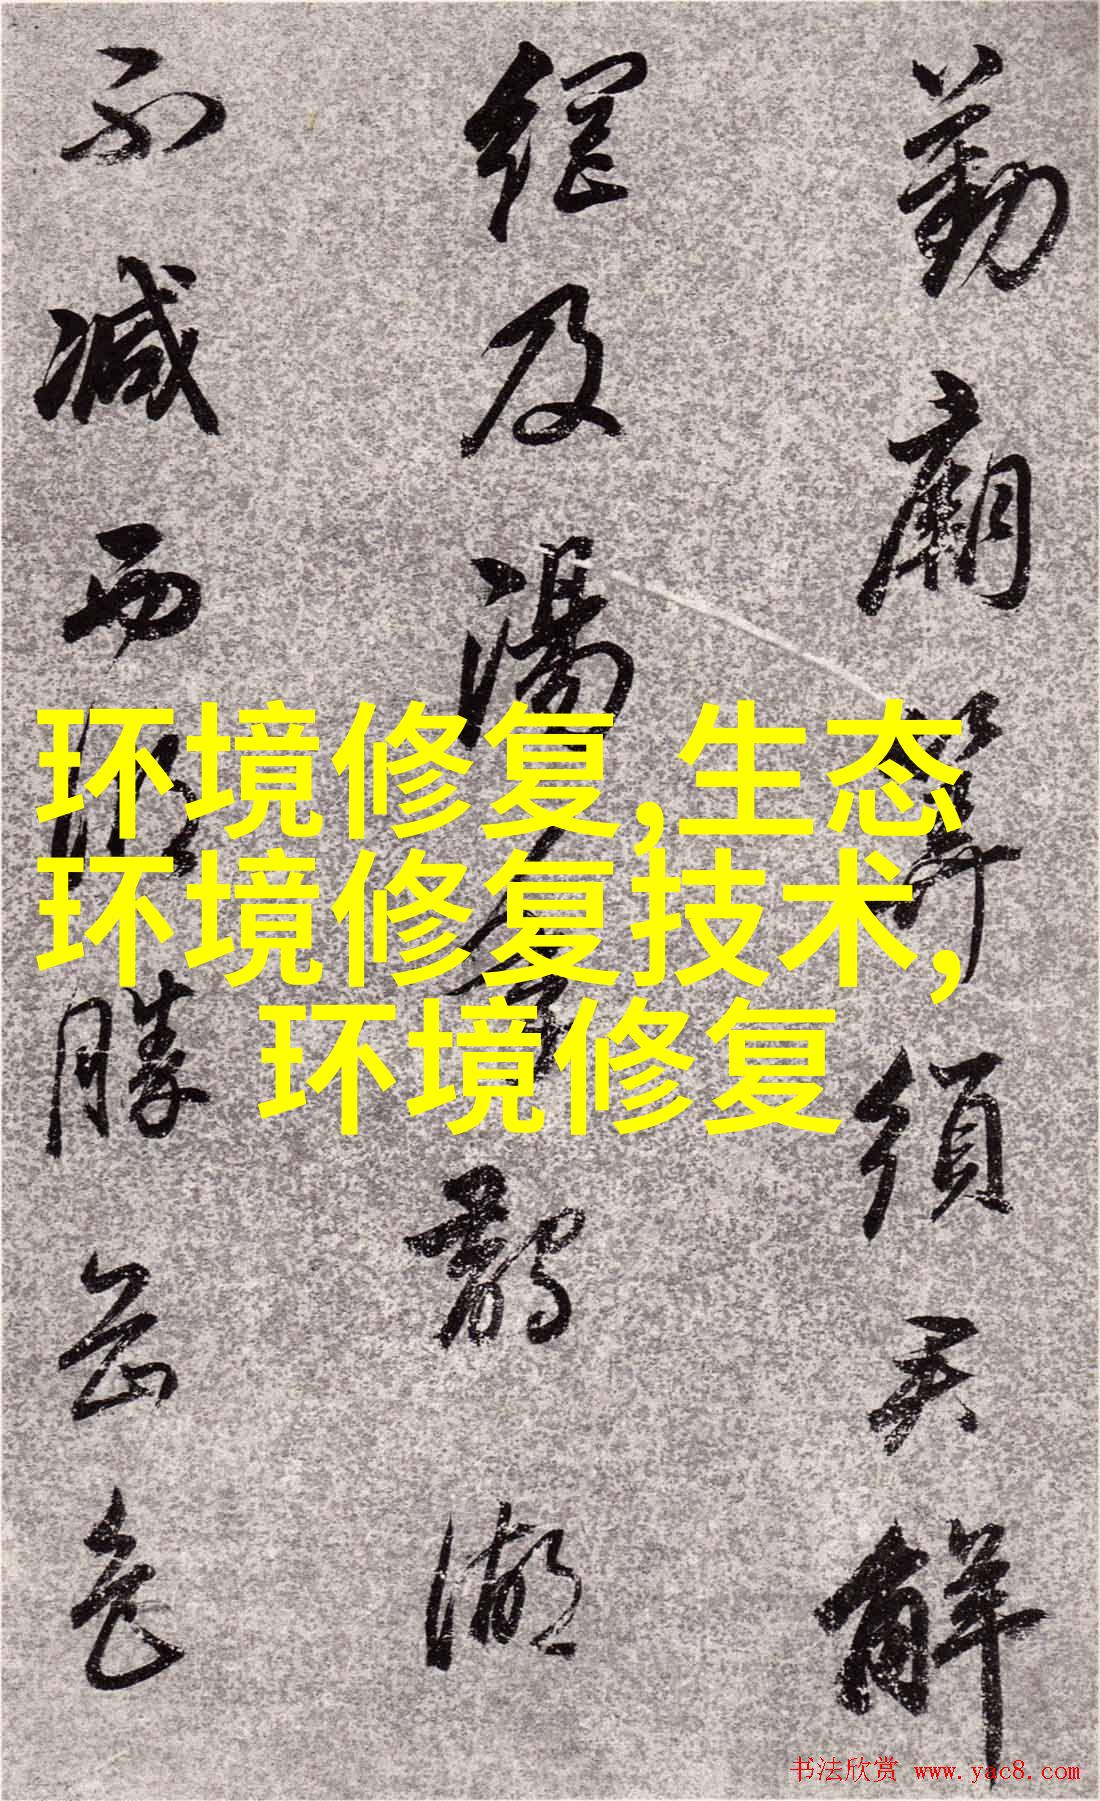 勤廟筭須解
網及湯鵲湖
不減西湖勝色
环境修复,生态
环境修复技术,
环境修复
书法欣赏 www.yac8.com